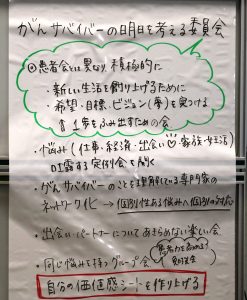 がんサバイバーの明日を考える委員会
◎患者会とは異なり、積極的に
・新しい生活を創り上げるために
・希望・目標・ビジョン(夢)を見つける
1歩をふみ出すための会
・悩み(仕事・経済・出会い♡・家族・生活)
吐露する定例会を開く
・がんサバイバーのことを理解している専門家の
ネットワーク化 → 個別性ある悩みへ個別の対応
・出会い・パートナーについてあきらめない楽しい会
・同じ悩みを持つグループ会
患者力を高める!
勉強会
自分の価値感シートを作り上げる